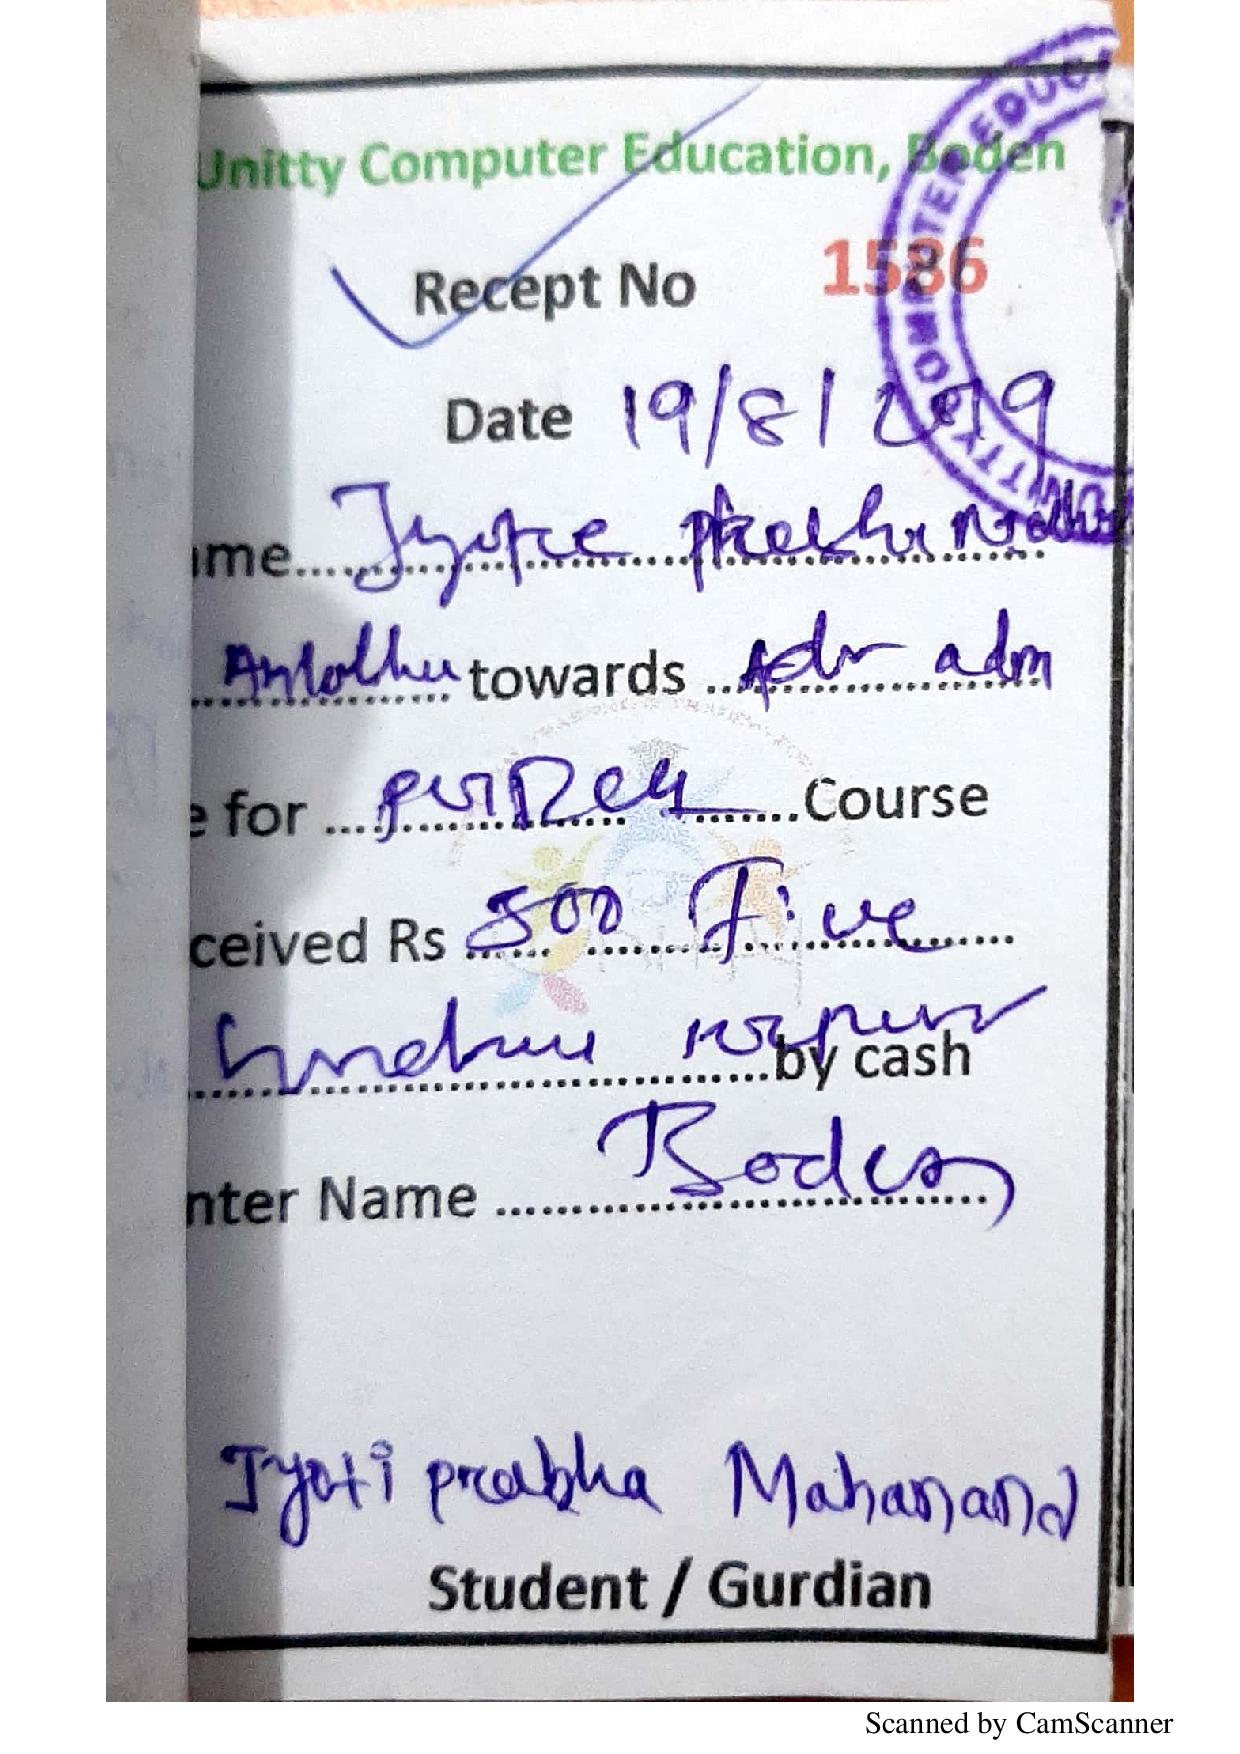 Unitty Computer Education, Boden
Recept No 1586
Date 19/8/2019
ame
towards Adv adm
e for Course
ceived Rs 500 Five
by cash
nter Name Boden
Jyoti prabha Mahanand
Student / Gurdian
UNITTY COMPUTER EDUCA
Scanned by CamScanner